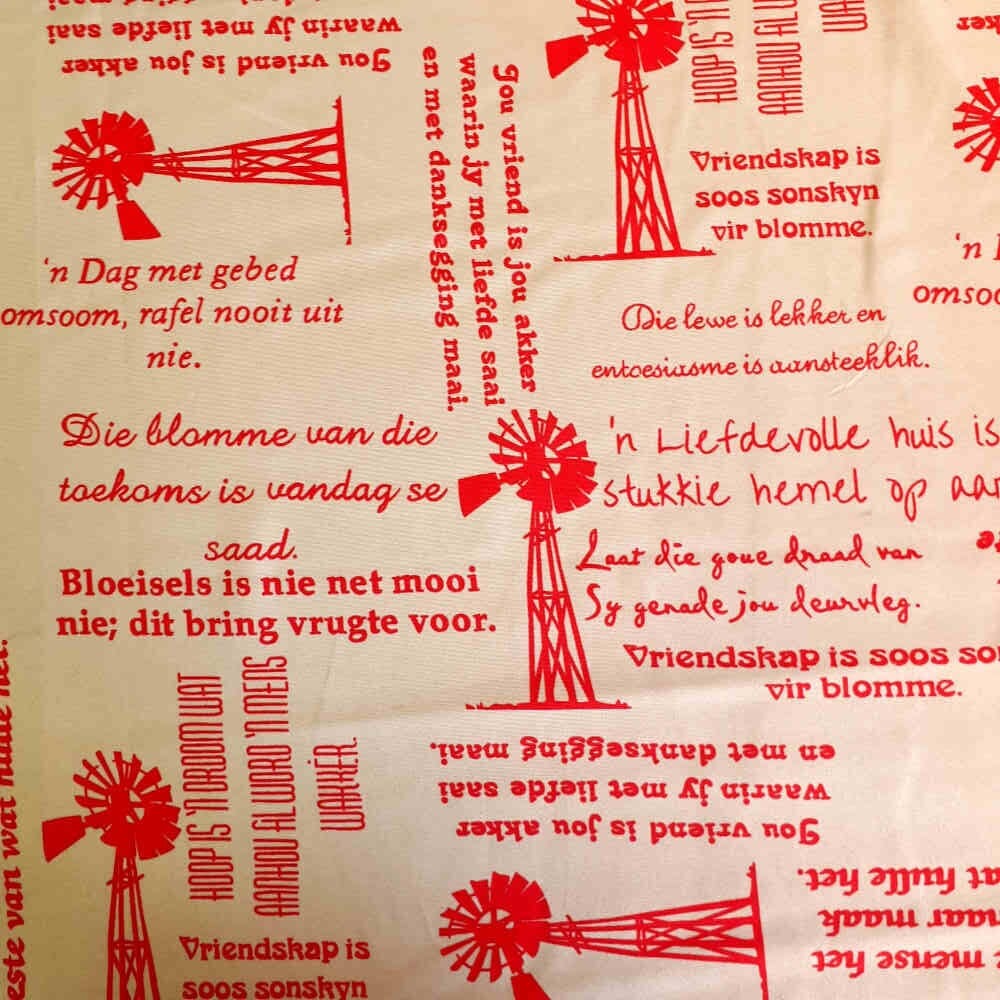 waarin jy met liefde saai
Jou vriend is jou akker
HOOP IS 'N
AANHOU AL W
WA
Jou vriend is jou akker
waarin jy met liefde saai
en met danksegging maai.
Vriendskap is
soos sonskyn
vir blomme.
'n Dag met gebed
omsoom, rafel nooit uit
nie.
'n
omsoo
Die lewe is lekker en
entoesiasme is aansteeklik.
Die blomme van die
toekoms is vandag se
saad.
'n Liefdevolle huis is
stukkie hemel op aar
Bloeisels is nie net mooi
nie; dit bring vrugte voor.
Laat die goue draad van
Sy genade jou deurvleg.
Vriendskap is soos so
vir blomme.
este van wat hulle het.
HOOP IS 'N DROOM WAT
AANHOU AL WORD 'N MENS
WAKKER.
Jou vriend is jou akker
waarin jy met liefde saai
en met danksegging maai.
Vriendskap is
soos sonskyn
mense het
maar maak
at hulle het.